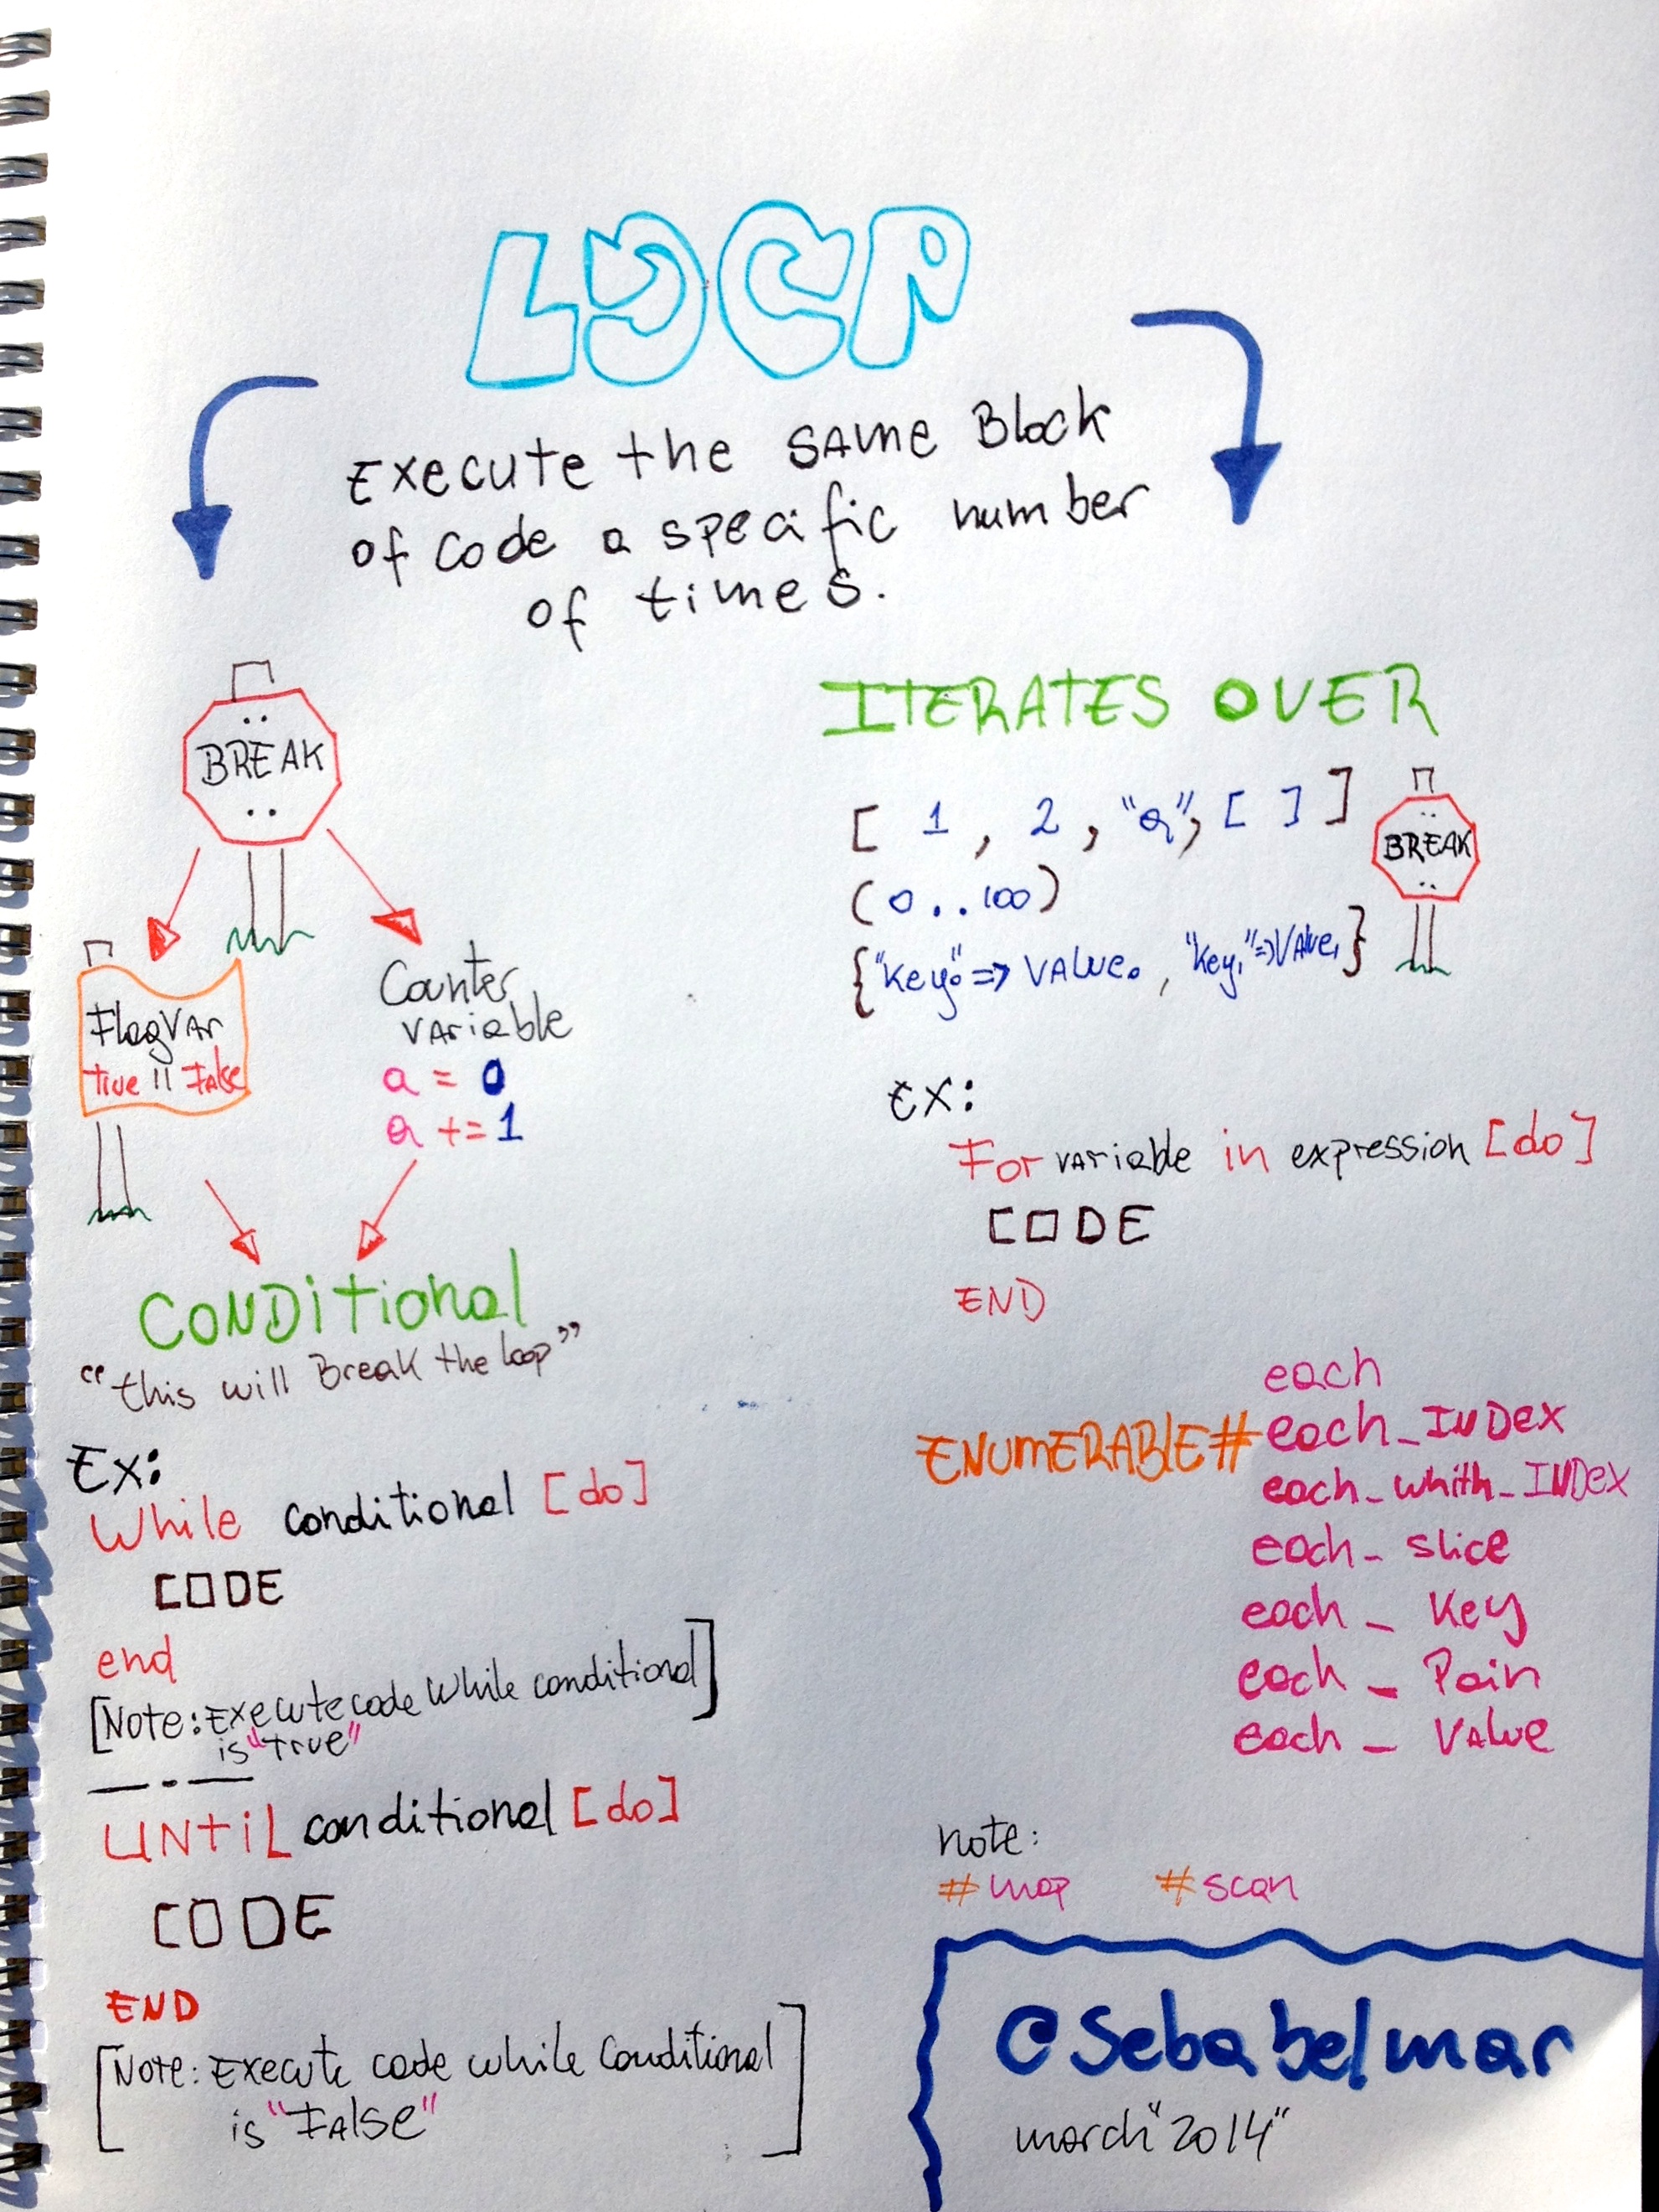 LOOP
Execute the same Block
of code a specific number
of times.
BREAK
FlagVar
true || False
Counter
variable
a = 0
a += 1
CONDitional
"this will Break the loop"
Ex:
While conditional [do]
CODE
end
[Note: Execute code While conditional]
is "true"
UNTiL conditional [do]
CODE
END
[Note: Execute code while Conditional]
is "False"
ITERATES OVER
[ 1 , 2 , "a", [ ] ]
BREAK
(0..100)
{"Key0" => VALue0 , "Key1" => VALue1}
Ex:
For variable in expression [do]
CODE
END
ENUMERABLE#
each
each_INDex
each_whith_INDex
each_slice
each_Key
each_Pain
each_Value
note:
#map #scan
@Sebabelmar
march "2014"